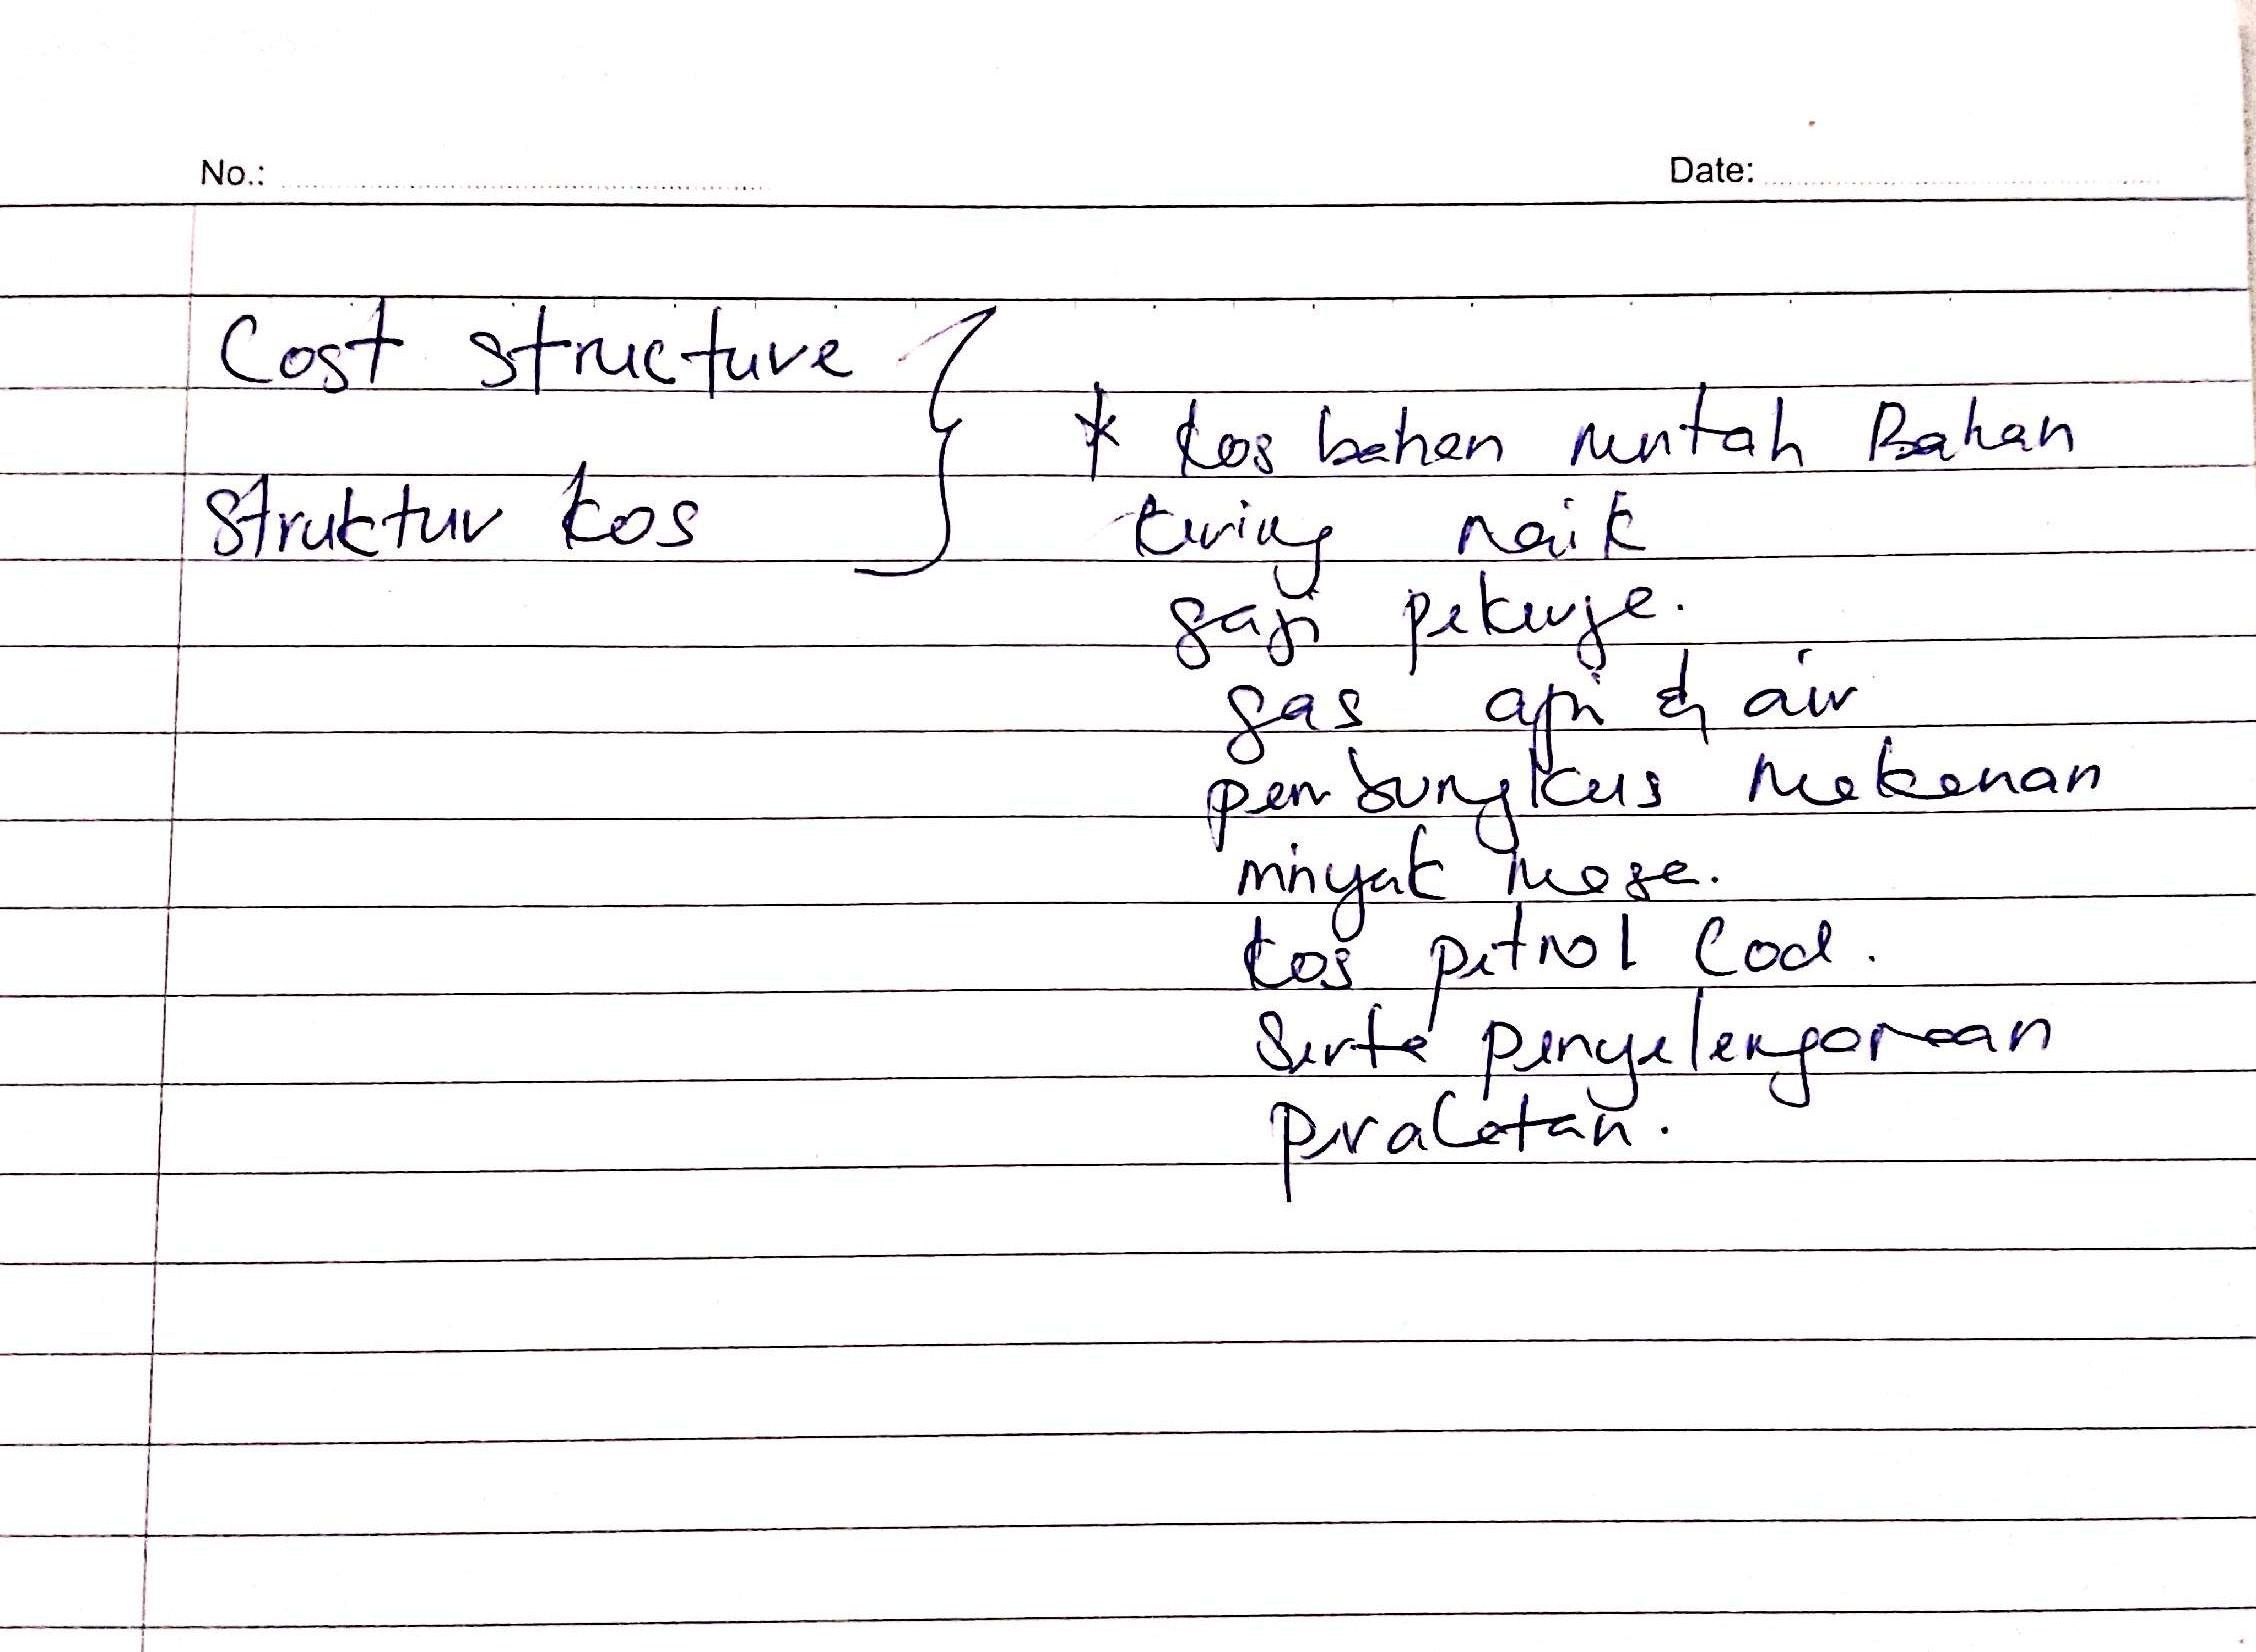 No.:
Date:
Cost structure
struktur kos
* kos bahan mntah Bahan
kering naik
gaji pekerje.
gas api & air
pembungkus makanan
minyak mase.
kos petrol Cod.
serta penyelengaraan
peralatan.